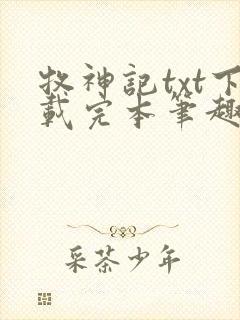 牧神記txt下
載完本筆趣
采茶少年